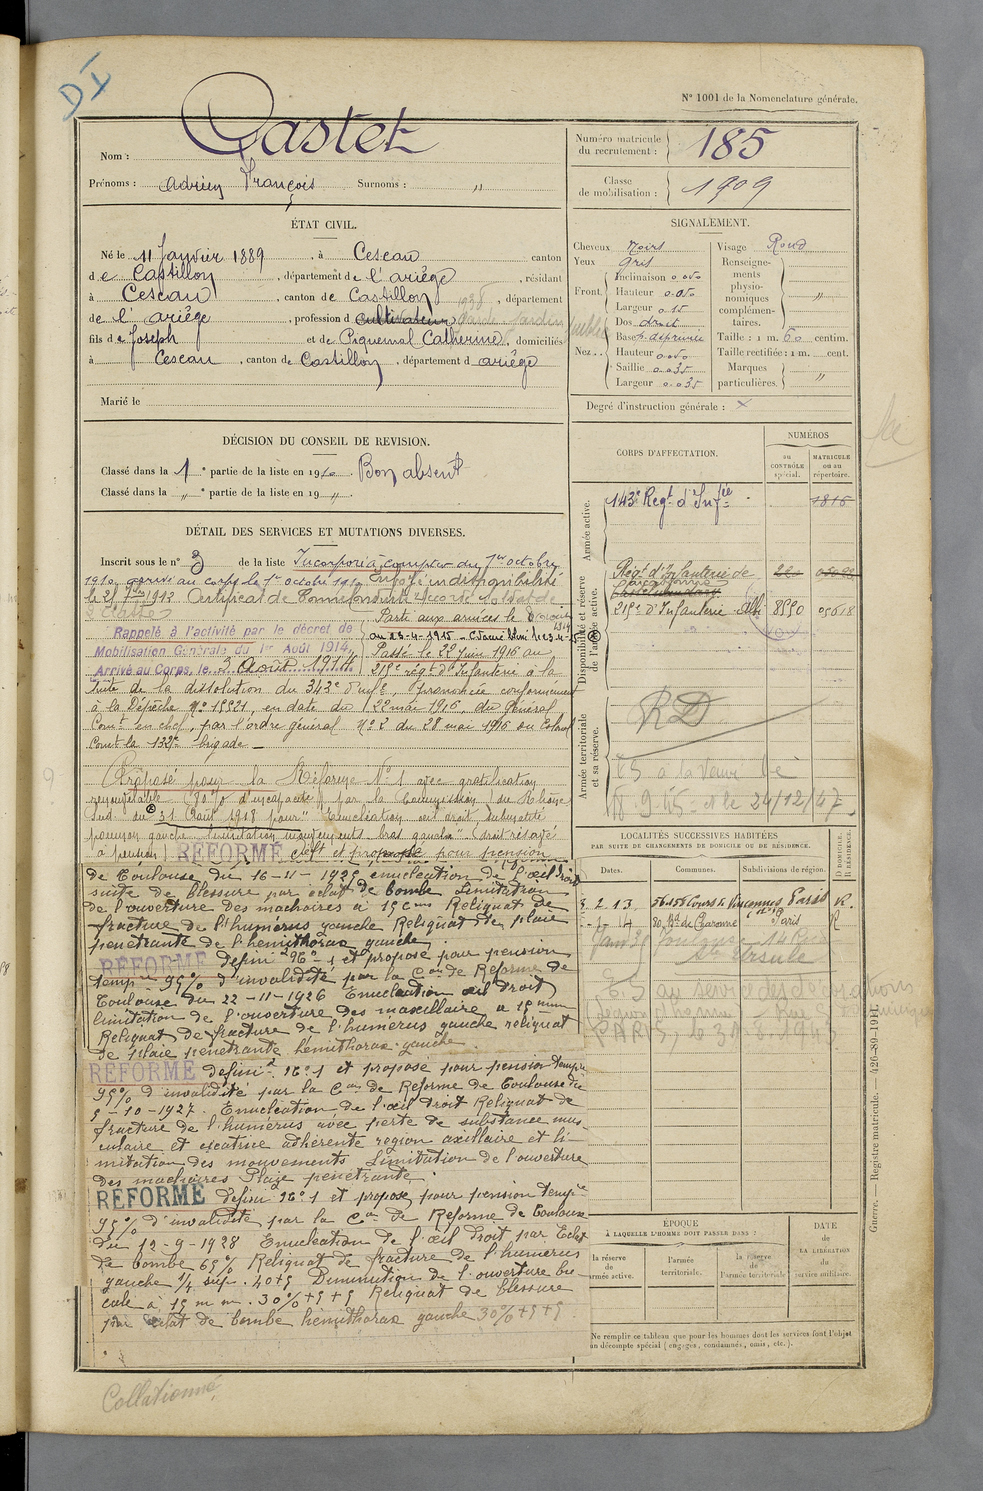 DI
N° 1001 de la Nomenclature générale.
Nom : Castet
Prénoms : Adrien François Surnoms : "
Numéro matricule du recrutement : 185
Classe de mobilisation : 1909
ÉTAT CIVIL.
Né le 11 Janvier 1889, à Cescau canton
de Castillon, département de l'ariège, résidant
à Cescau, canton de Castillon, département
de l'ariège, profession de cultivateur
fils de Joseph et de Piquemal Catherine, domiciliés
à Cescau, canton de Castillon, département d ariège
Marié le
SIGNALEMENT.
Cheveux Noirs
Yeux gris
Front. Inclinaison 0.050
Hauteur 0.050
Largeur 0.15
Nez... Dos droit
Base déprimée
Hauteur 0.050
Saillie 0.035
Largeur 0.035
Visage Rond
Renseignements physionomiques complémentaires. "
Taille : 1 m. 60 centim.
Taille rectifiée : 1 m. cent.
Marques particulières. "
Degré d'instruction générale : X
DÉCISION DU CONSEIL DE REVISION.
Classé dans la 1e partie de la liste en 1910 Bon absent
Classé dans la " e partie de la liste en 19 "
CORPS D'AFFECTATION.
NUMÉROS
AU CONTRÔLE spécial.
MATRICULE ou au répertoire.
Armée active.
143e Regt d'Infie 1816
Disponibilité et réserve de l'armée active.
Régt d'Infanterie de
Carcassonne
219e d'Infanterie 8590
Armée territoriale et sa réserve.
RD
DÉTAIL DES SERVICES ET MUTATIONS DIVERSES.
Inscrit sous le n° 3 de la liste Incorporé à compter du 1er octobre
1910 arrivé au corps le 1er octobre 1910
Certificat de
Rappelé à l'activité par le décret de
Mobilisation Générale du 1er Août 1914,
Arrivé au Corps, le 3 Août 1914
Parti aux armées le
au 23-4-1915
Passé le 22 Juin 1916 au
219e régt d'Infanterie à la
suite de la dissolution du 343e prononcée conformément
à la Dépêche N° 19921, en date du 22 mai 1916, du Général
Comt en chef, par l'ordre général N° 2 du 28 mai 1916 du Colonel
Comt la 132e brigade
Proposé pour la Réforme N° 1 avec gratification
renouvelable par la Commission du Rhône
Sud du 31 Août 1918 pour "Enucléation œil droit,
poumon gauche limitation mouvements bras gauche"
à pension) RÉFORMÉ et proposé pour pension
de Toulouse du 16-11-1925 énucléation de l'œil droit
suite de blessure par éclat de bombe Limitation
de l'ouverture des machoires à 15 Reliquat de
fracture de l'humérus gauche Reliquat de plaie
pénétrante de l'hémithorax gauche
RÉFORMÉ définif N° 1 et proposé pour pension
temp 95% d'invalidité par la Con de Réforme de
Toulouse du 22-11-1926 Enucléation œil droit
limitation de l'ouverture des maxillaires à 15 mm
Reliquat de fracture de l'humérus gauche reliquat
de plaie pénétrante hémithorax gauche.
RÉFORMÉ définif N° 1 et proposé pour pension temp
95% d'invalidité par la Con de Réforme de Toulouse du
5-10-1927. Enucléation de l'œil droit Reliquat de
fracture de l'humérus avec perte de substance mus-
culaire et cicatrice adhérente région axillaire et li-
mitation des mouvements Limitation de l'ouverture
des machoires Plaie pénétrante
RÉFORMÉ définif N° 1 et proposé pour pension temp
95% d'invalidité par la Con de Réforme de Toulouse
du 12-9-1928 Enucléation de l'œil droit par Eclat
de bombe 65% Reliquat de fracture de l'humérus
gauche 1/4 sup. 40+5 Diminution de l'ouverture buc-
cale à 15 mm. 30%+5+5 Reliquat de blessure
par éclat de bombe hémithorax gauche 30%+5+5
LOCALITÉS SUCCESSIVES HABITÉES
PAR SUITE DE CHANGEMENTS DE DOMICILE OU DE RÉSIDENCE.
Dates. Communes. Subdivisions de région. D DOMICILE. R RÉSIDENCE.
2.13 Cours de Vincennes Paris R.
14 80 Bd de Charonne Paris R
Toulouse 14 Rue
Ste Ursule
au service des décorations
PARIS,
ÉPOQUE
À LAQUELLE L'HOMME DOIT PASSER DANS :
la réserve de l'armée active.
l'armée territoriale.
la réserve de l'armée territoriale
DATE de LA LIBÉRATION du service militaire.
Ne remplir ce tableau que pour les hommes dont les services font l'objet
un décompte spécial (engagés, condamnés, omis, etc.).
Guerre. — Registre matricule. — 426-89-1911.
Collationné